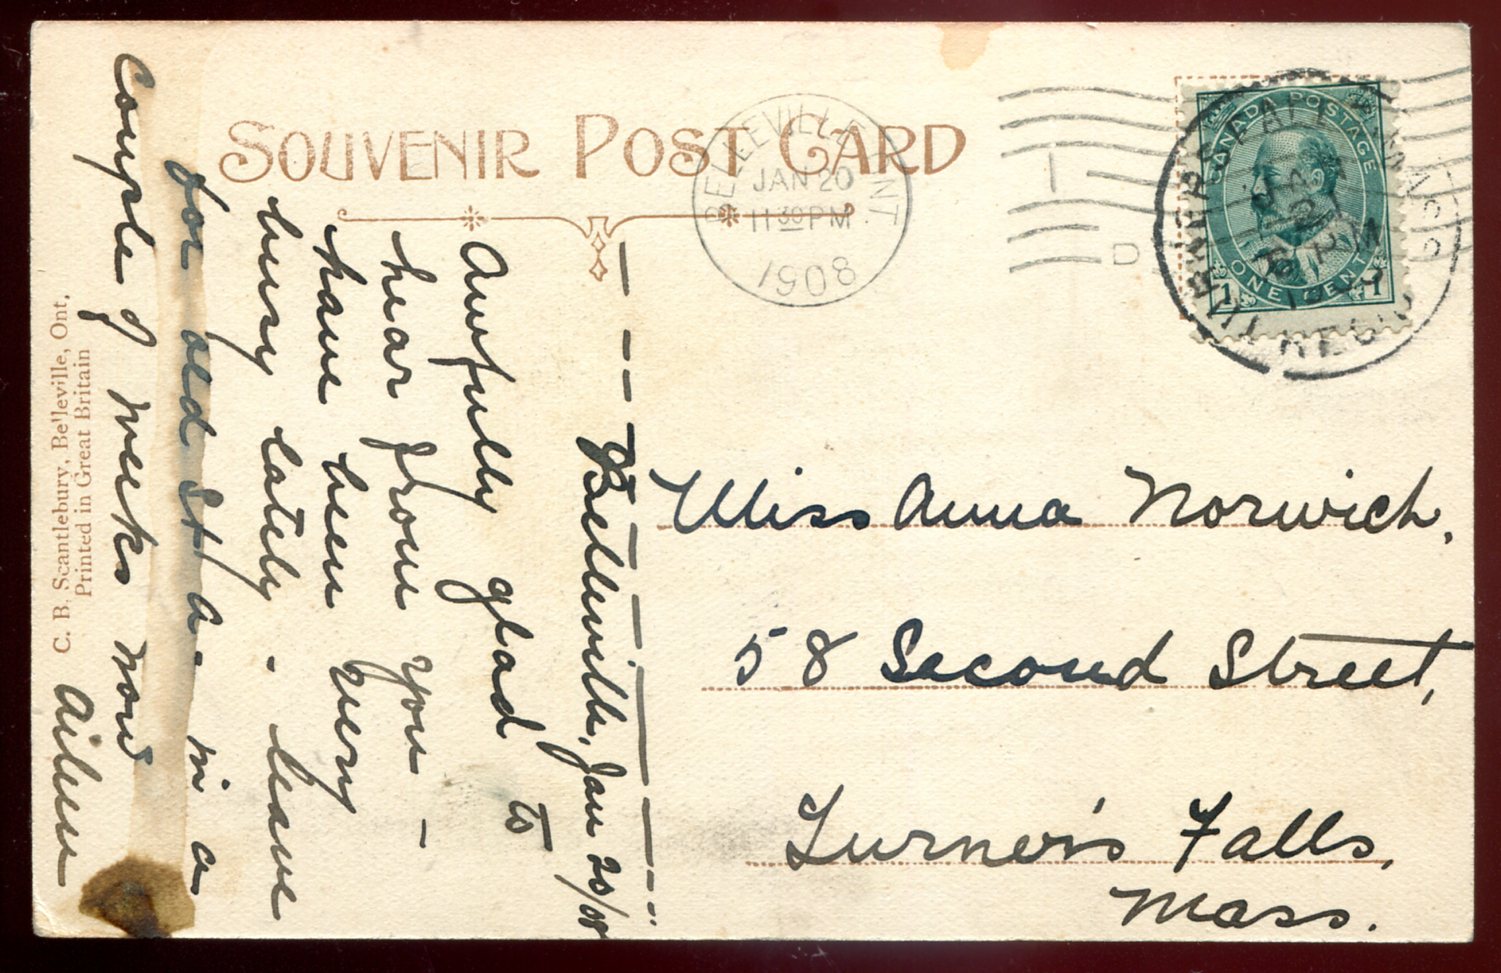 SOUVENIR POST CARD
BELLEVILLE ONT.
JAN 20
11 30 PM
1908
1
D
CANADA POSTAGE
ONE CENT
1 1
TURNERS FALLS MASS.
REC'D
Belleville, Jan 20/08
Awfully glad to
hear from you –
have been very
busy lately. leave
for old St A. in a
couple of weeks now
Aileen
Miss Anna Norwich,
58 Second Street,
Turner's Falls,
Mass.
C. B. Scantlebury, Belleville, Ont.
Printed in Great Britain